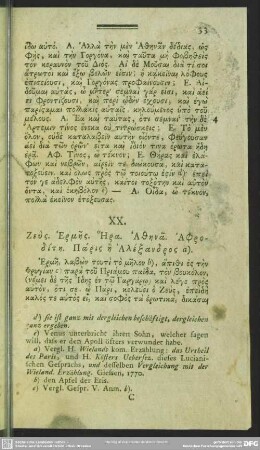 33
ἰδω αὐτό. Α. Ἀλλὰ τὴν μὲν Ἀθηνᾶν δέδιας, ὡς
φῂς, καὶ τὴν Γοργόνα. καὶ ταῦτα μὴ φοβηθεὶς
τὸν κεραυνὸν τοῦ Διός. Αἱ δὲ Μοῦσαι διὰ τί σοι
ἄτρωτοι καὶ ἔξω βελῶν εἰσιν; ἢ κᾀκεῖναι λόφους
ἐπισείουσι, καὶ Γοργόνας προφαίνουσιν; Ε. Αἰ-
δοῦμαι αὐτὰς, ὦ μῆτερ· σεμναὶ γάρ εἰσι, καὶ ἀεί
τι φροντίζουσι, καὶ περὶ ᾠδὴν ἔχουσι, καὶ ἐγὼ
παρίσταμαι πολλάκις αὐταῖς, κηλούμενος ὑπὸ τοῦ
μέλους. Α. Ἔα καὶ ταύτας, ὅτι σεμναί· τὴν δὲ 4
Ἄρτεμιν τίνος ἕνεκα οὐ τιτρώσκεις; Ε. Τὸ μὲν
ὅλον, οὐδὲ καταλαβεῖν αὐτὴν οἷόντε, φεύγουσαν
ἀεὶ διὰ τῶν ὀρῶν· εἶτα καὶ ἴδιόν τινα ἔρωτα ἤδη
ἐρᾷ. Αφ. Τίνος, ὦ τέκνον; Ε. Θήρας καὶ ἐλά-
φων καὶ νεβρῶν, αἱρεῖν τε διώκουσα, καὶ κατα-
τοξεύειν. καὶ ὅλως πρὸς τῷ τοιούτῳ ἐστίν d)· ἐπεὶ
τόν γε ἀδελφὸν αὐτῆς, καίτοι τοξότην καὶ αὐτὸν
ὄντα, καὶ ἑκηβόλον e) — Α. Οἶδα, ὦ τέκνον,
πολλὰ ἐκεῖνον ἐτόξευσας.
XX.
Ζεὺς. Ἑρμῆς. Ἥρα. Ἀθηνᾶ. Ἀφρο-
δίτη. Πάρις ἢ Ἀλέξανδρος a).
Ἑρμῆ, λαβὼν τουτὶ τὸ μῆλον b), ἄπιθι ἐς τὴν
Φρυγίαν c) παρὰ τοῦ Πριάμου παῖδα, τὸν βουκόλον,
(νέμει δὲ τῆς Ἴδης ἐν τῷ Γαργάρῳ) καὶ λέγε πρὸς
αὐτὸν, ὅτι σε, ὦ Πάρι, κελεύει ὁ Ζεὺς, ἐπειδὴ
καλός τε αὐτὸς εἶ, καὶ σοφὸς τὰ ἐρωτικὰ, δικάσαι
d) sie ist ganz mit dergleichen beschäftigt, dergleichen
ganz ergeben.
e) Venus unterbricht ihren Sohn, welcher sagen
will, dass er den Apoll öfters verwundet habe.
a) Vergl. H. Wielands kom. Erzählung: das Urtheil
des Paris, und H. Kösters Uebersetz. dieses Luciani-
schen Gesprächs, und desselben Vergleichung mit der
Wieland. Erzählung. Giessen, 1770.
b) den Apfel der Eris.
c) Vergl. Gespr. V. Anm. b).
C